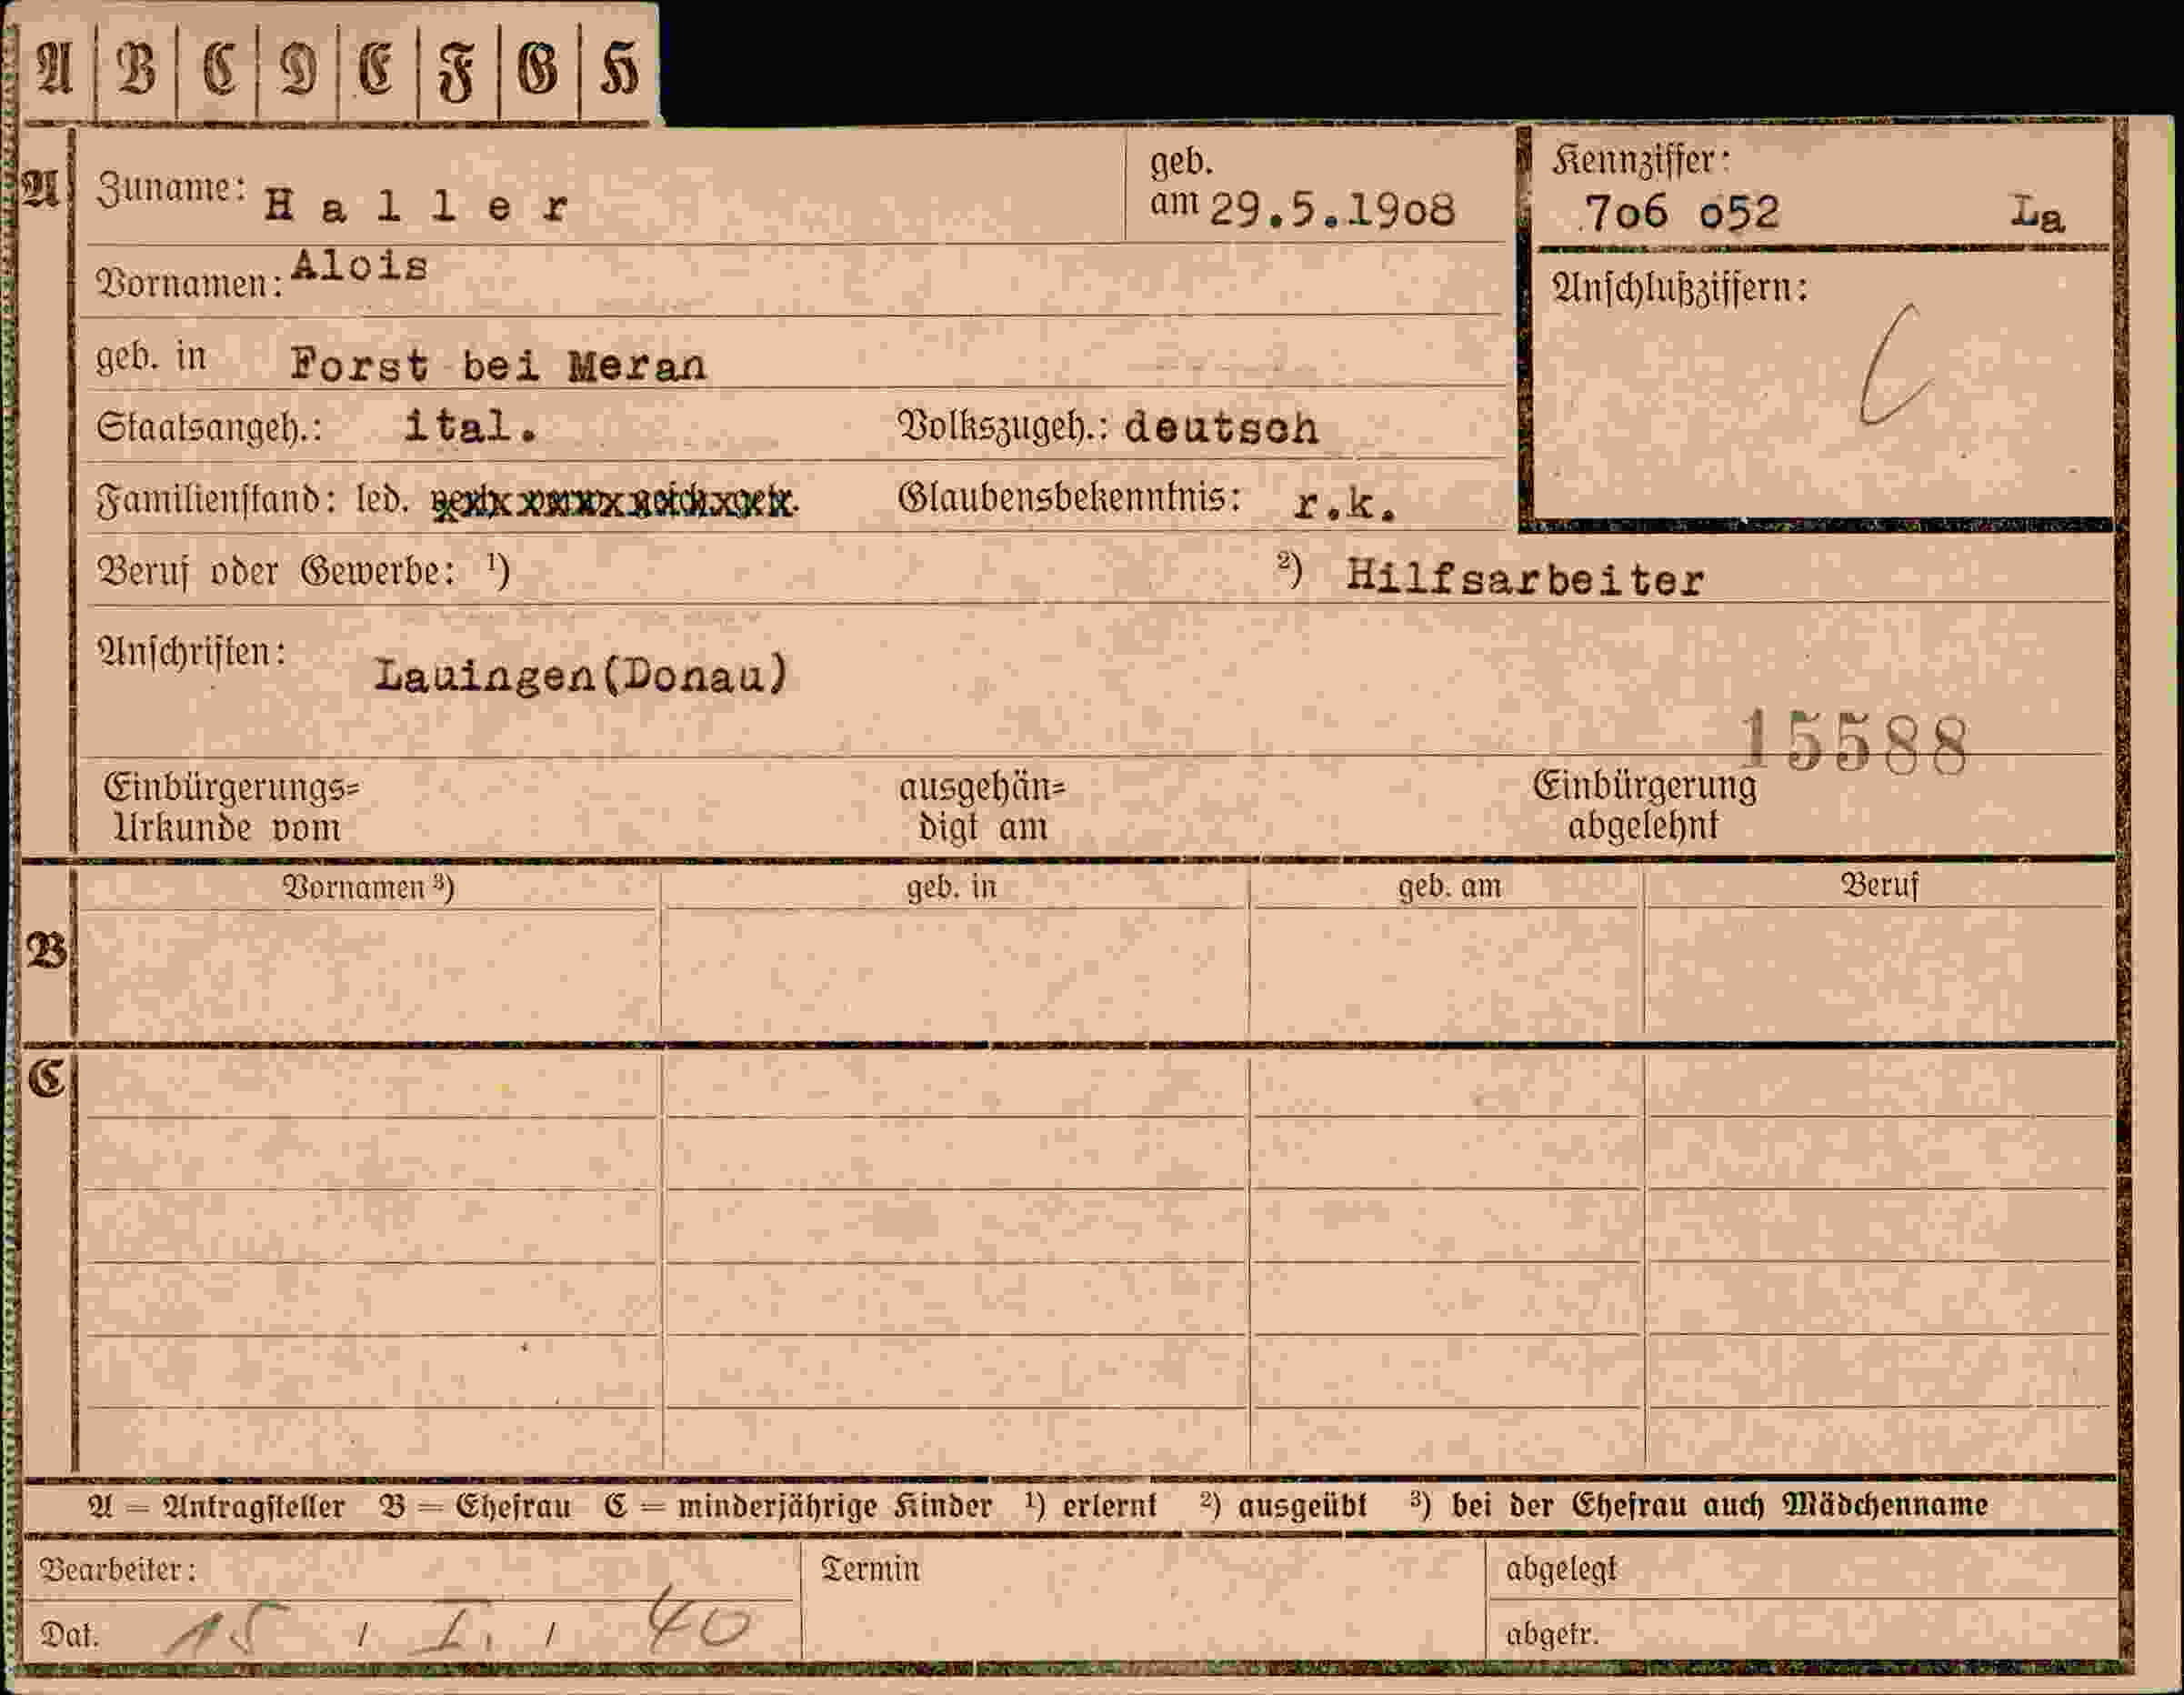 A B C D E F G H
A Zuname: Haller geb. am 29.5.1908 Kennziffer: 706 052 La
Vornamen: Alois Anschlußziffern:
geb. in Forst bei Meran
Staatsangeh.: ital. Volkszugeh.: deutsch
Familienstand: led. Glaubensbekenntnis: r.k.
Beruf oder Gewerbe: ¹) ²) Hilfsarbeiter
Anschriften: Lauingen(Donau)
15588
Einbürgerungs= ausgehän= Einbürgerung
Urkunde vom digt am abgelehnt
Vornamen ³) geb. in geb. am Beruf
B
C
A = Antragsteller B = Ehefrau C = minderjährige Kinder ¹) erlernt ²) ausgeübt ³) bei der Ehefrau auch Mädchenname
Bearbeiter: Termin abgelegt
Dat. 15 / I. / 40 abgetr.